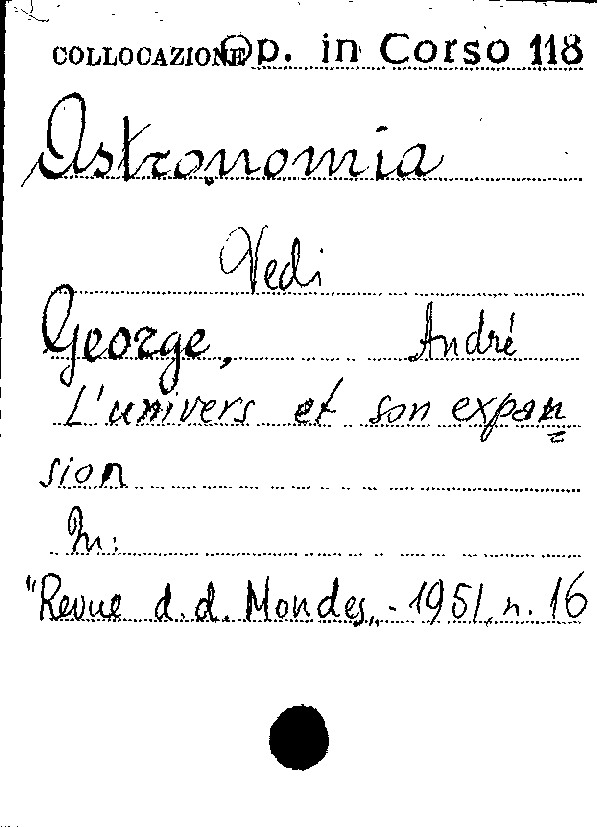 COLLOCAZIONE Op. in Corso 118
Astronomia
Vedi
George, André
L'univers et son expan=
sion
In:
"Revue d. d. Mondes,, - 1951, n. 16